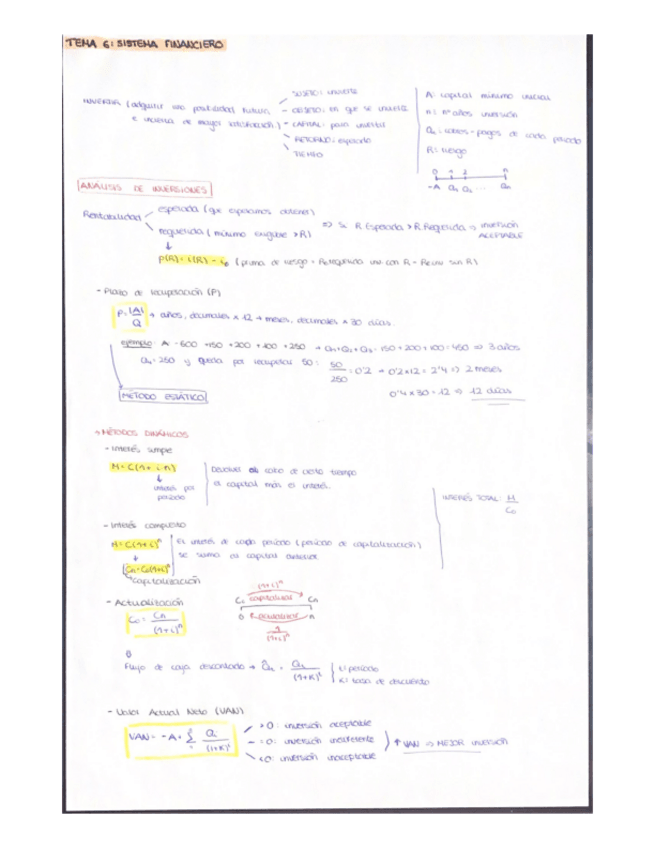 TEMA 6: SISTEMA FINANCIERO
SUJETO: invierte
INVERTIR (adquirir una posibilidad futura, - OBJETO: en que se invierte
e incierta de mayor satisfacción) - CAPITAL: para invertir
RETORNO: esperado
TIEMPO
A: capital mínimo inicial
n: nº años inversión
Q: cobros - pagos de cada período
R: riesgo
0 1 2 n
-A Q1 Q2 ... Qn
ANÁLISIS DE INVERSIONES
Rentabilidad
esperada (que esperamos obtener)
requerida (mínimo exigible >R)
⇒ Si R. Esperada > R. Requerida ⇒ inversión
ACEPTABLE
P(R) = i(R) - i0 (prima de riesgo = R. requerida inv con R - R. inv sin R)
- Plazo de recuperación (P)
P = |A| / Q → años, decimales x 12 → meses, decimales x 30 días.
ejemplo: A -500 +150 +200 +100 +250 → Q1+Q2+Q3 = 150+200+100 = 450 ⇒ 3 años
Q4 = 250 y queda por recuperar 50: 50/250 = 0'2 → 0'2x12 = 2'4 ⇒ 2 meses
0'4 x 30 = 12 ⇒ 12 días
MÉTODO ESTÁTICO
→ MÉTODOS DINÁMICOS
- Interés simple
M = C(1+i·n)
interés por
período
Devolver al cabo de cierto tiempo
el capital más el interés.
INTERÉS TOTAL: M/C0
- Interés compuesto
M = C(1+i)^n
El interés de cada período (período de capitalización)
se suma al capital anterior
Cn = C0(1+i)^n
capitalización
- Actualización
C0 = Cn / (1+i)^n
(1+i)^n
C0 capitalizar Cn
0 actualizar n
1 / (1+i)^n
Flujo de caja descontado → Q̂t = Qt / (1+K)^t
t: período
K: tasa de descuento
- Valor Actual Neto (VAN)
VAN = -A + Σ Qi / (1+K)^i
>0: inversión aceptable
=0: inversión indiferente
<0: inversión inaceptable
↑ VAN ⇒ MEJOR inversión